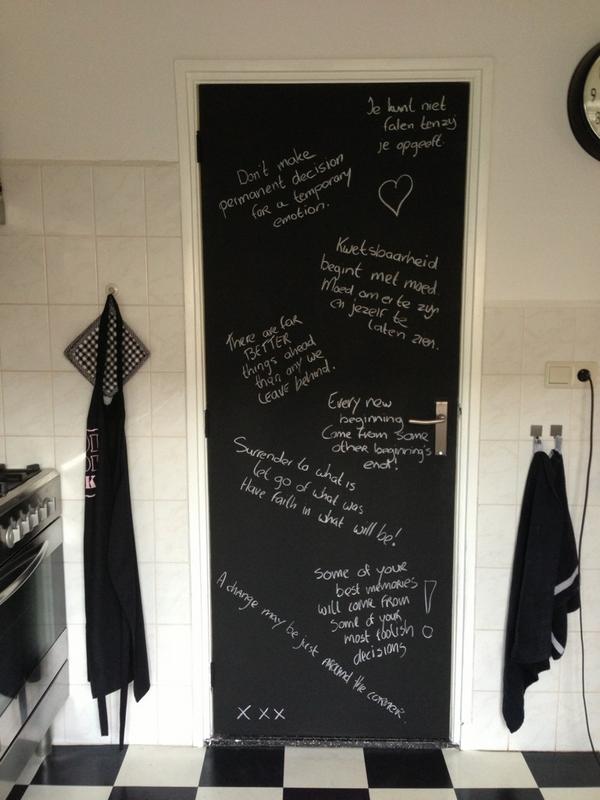 Je kunt niet
falen tenzij
je opgeeft.
Don't make
permanent decision
for a temporary
emotion.
Kwetsbaarheid
begint met moed.
Moed om er te zijn
en jezelf te
laten zien.
There are far
BETTER
things ahead
than any we
LEAVE behind.
Every new
beginning
Come from some
other beginning's
end!
Surrender to what is
let go of what was
Have faith in what will be!
some of your
best memories
will come from
some of your
most foolish
decisions
!
A change may be just around the corner.
X X X
9
8
K